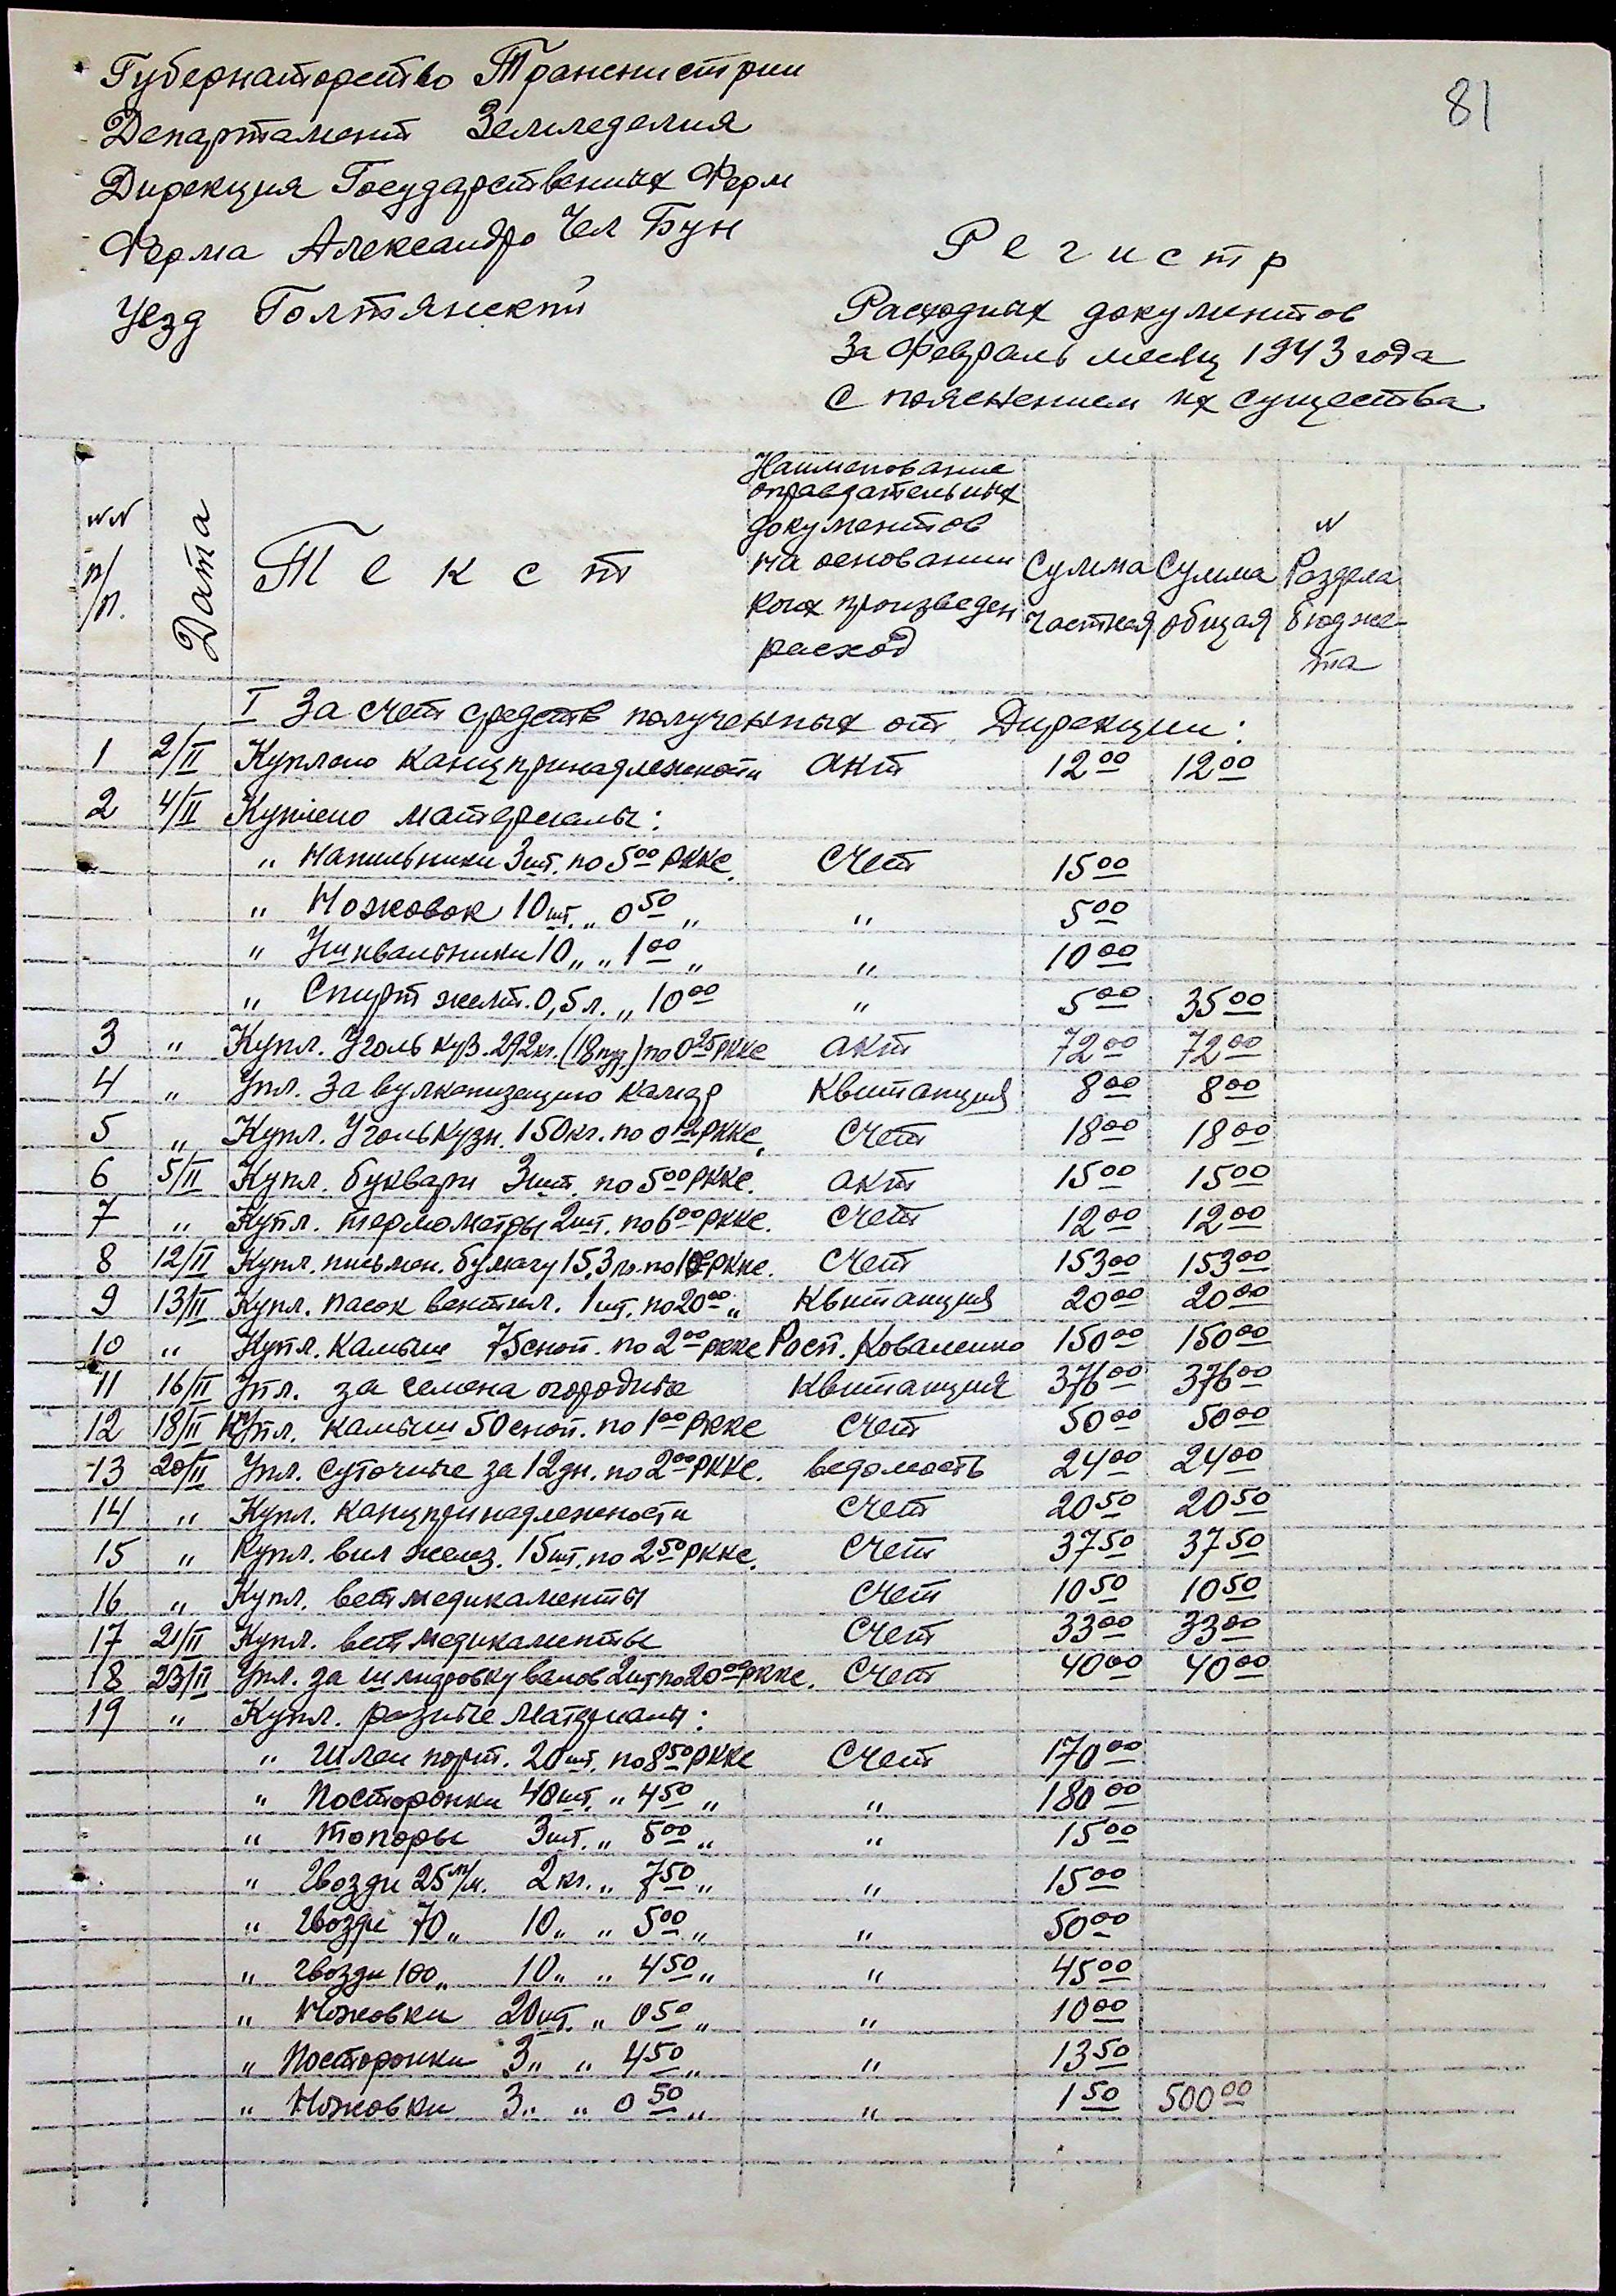 81
Губернаторство Транснистрии
Департамент Земледелия
Дирекция Государственных Ферм
Ферма Александро Чел Бун
Уезд Голтянский
Регистр
Расходных документов
За Февраль месяц 1943 года
с пояснением их существа
NN п/п. Дата Текст Наименование оправдательных документов на основании коих произведен расход Сумма частная Сумма общая N Раздела бюджета
I За счет средств полученных от Дирекции:
1 2/II Куплено канцпринадлежности акт 12 00 12 00
2 4/II Куплено материалы:
" Напильники 3 шт. по 5 00 РККС. Счет 15 00
" Ножовок 10 шт. " 0 50 " " 5 00
" 10 " " 1 00 " " 10 00
" Спирт 0,5 л. " 10 00 " 5 00 35 00
3 " Купл. Уголь куз. 292 кг. (18 пуд.) по 0 25 РККС акт 72 00 72 00
4 " Упл. За вулканизацию камер Квитанция 8 00 8 00
5 " Купл. Уголь кузн. 150 кг. по 0 12 РККС. Счет 18 00 18 00
6 5/II Купл. буквари 3 шт. по 5 00 РККС. акт 15 00 15 00
7 " Купл. термометры 2 шт. по 6 00 РККС. Счет 12 00 12 00
8 12/II Купл. письмен. бумагу 15,3 по РККС. Счет 153 00 153 00
9 13/II Купл. пасок вентил. 1 шт. по 20 00 " Квитанция 20 00 20 00
10 " Купл. Камыш 75 сноп. по 2 00 РККС Расп. Коваленко 150 00 150 00
11 16/II Упл. за семена огородные Квитанция 376 00 376 00
12 18/II Купл. камыш 50 сноп. по 1 00 РККС Счет 50 00 50 00
13 20/II Упл. суточные за 12 дн. по 2 00 РККС. ведомость 24 00 24 00
14 " Купл. канцпринадлежности Счет 20 50 20 50
15 " Купл. вил желез. 15 шт. по 2 50 РККС. Счет 37 50 37 50
16 " Купл. ветмедикаменты Счет 10 50 10 50
17 21/II Купл. ветмедикаменты Счет 33 00 33 00
18 23/II Упл. за шлифовку валов 2 шт по 20 00 РККС. Счет 40 00 40 00
19 " Купл. разные материалы:
" Шлеи 20 шт. по 8 50 РККС Счет 170 00
" Посторонки 40 шт. " 4 50 " " 180 00
" топоры 3 шт. " 5 00 " " 15 00
" Гвозди 25 м/м. 2 кг. " 7 50 " " 15 00
" Гвозди 70 " 10 " " 5 00 " " 50 00
" Гвозди 100 " 10 " " 4 50 " " 45 00
" Ножовки 20 шт. " 0 50 " " 10 00
" Посторонки 3 " " 4 50 " " 13 50
" Ножовки 3 " " 0 50 " " 1 50 500 00